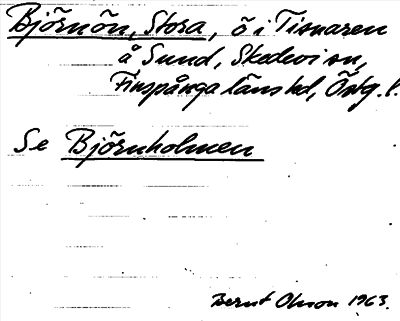 Björnön, Stora, ö i Tisnaren
å Sund, Skedevi sn,
Finspånga länshd, Östg. l.
Se Björnholmen
Bernt Olsson 1963.